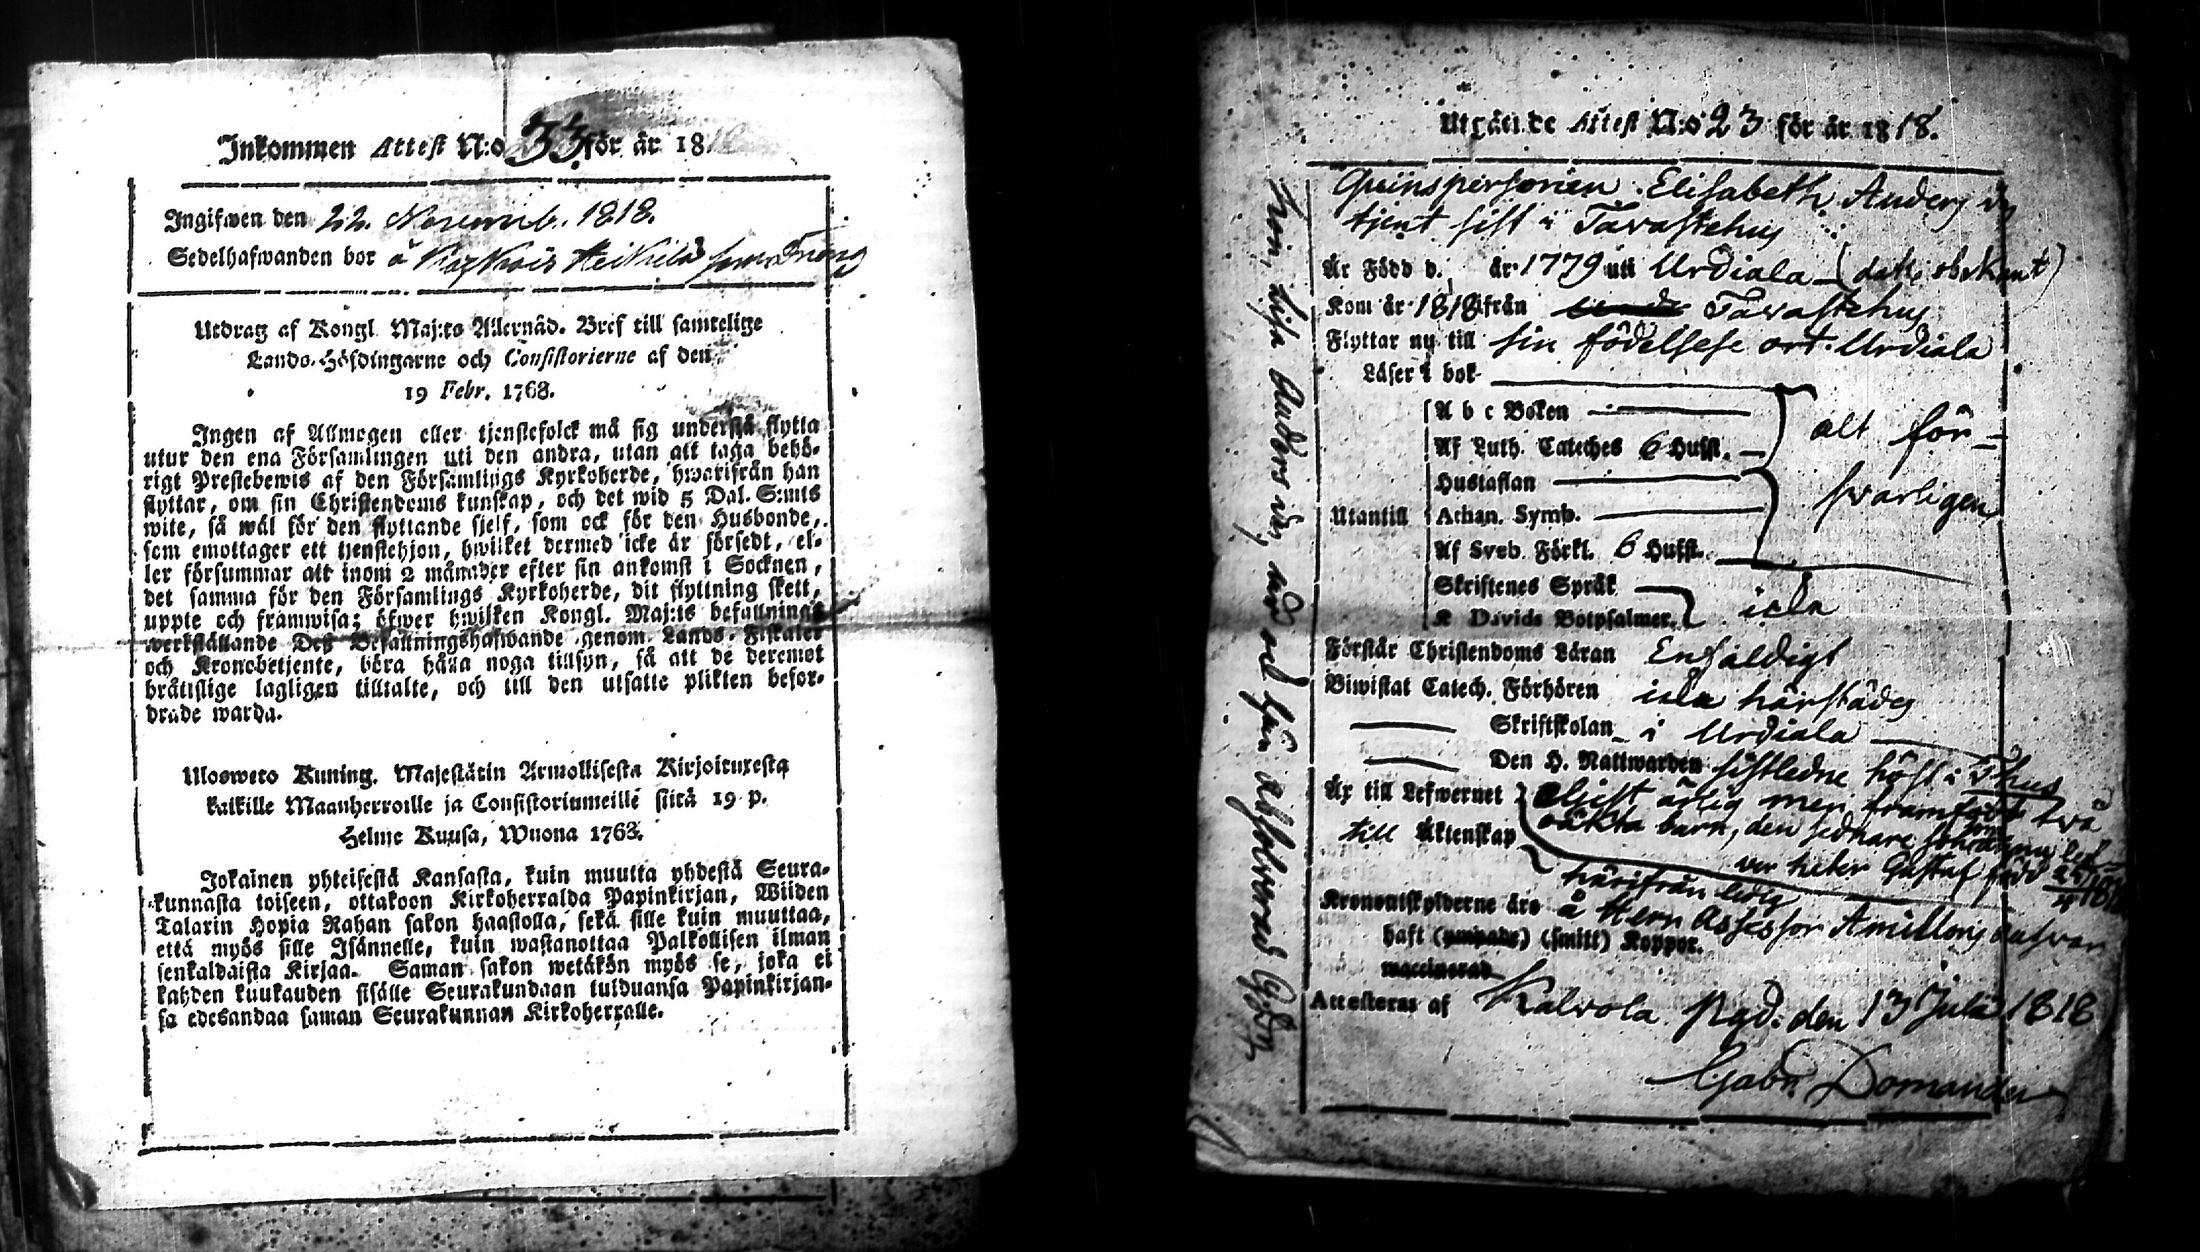 Inkommen Attest N:o 33 för år 18
Ingifwen den 22. Novemb. 1818.
Sedelhafwanden bor å Heikilä som Dräng
Utdrag af Kongl. Maj:ts Allernåd. Bref till samtelige
Lands-Höfdingarne och Consistorierne af den
19 Febr. 1768.
Ingen af Allmogen eller tjenstefolck må sig understå flytta
utur den ena Församlingen uti den andra, utan att taga behö-
rigt Prestebewis af den Församlings Kyrkoherde, hwarifrån han
flyttar, om sin Christendoms kunskap, och det wid 5 Dal. S:mts
wite, så wäl för den flyttande sjelf, som ock för den Husbonde,
som emottager ett tjenstehjon, hwilket dermed icke är försedt, el-
ler försummar att inom 2 månader efter sin ankomst i Socknen,
det samma för den Församlings Kyrkoherde, dit flyttning skett,
uppte och framwisa; öfwer hwilken Kongl. Maj:ts befallnings
werkställande Des Befallningshafwande genom Lands-Fiskaler
och Kronobetjente, böra hålla noga tillsyn, så att de deremot
bråttslige lagligen tilltalte, och till den utsatte plikten befor-
drade warda.
Ulosweto Kuning. Majestätin Armollisesta Kirjoituxesta
kaikille Maanherroille ja Consistoriumeille siitä 19 p.
Helme Kuusa, Wuona 1763.
Jokainen yhteisestä Kansasta, kuin muutta yhdestä Seura-
kunnasta toiseen, ottakoon Kirkoherralda Papinkirjan, Wiiden
Talarin Hopia Rahan sakon haastolla, sekä sille kuin muuttaa,
että myös sille Isännelle, kuin wastanottaa Palkollisen ilman
senkaldaista Kirjaa. Saman sakon wetäkön myös se, joka ei
kahden kuukauden sisälle Seurakundaan tulduansa Papinkirjan-
sa edesandaa saman Seurakunnan Kirkoherralle.
Utgåen de Attest N:o 23 för år 1818.
Qvinspersonen Elisabeth Anders dr
tjent sist i Tavastehus
Är Född d. år 1779 uti Urdiala (dato obekant)
Kom år 1818 ifrån Tavastehus
Flyttar nu till sin födelsese ort Urdiala
Läser i bok
A b c Boken
Af Luth. Cateches 6 Hufst.
alt för-
Hustaflan
swarligen
Utantill Athan. Symb.
Af Sveb. Förkl. 6 Hufst.
Skriftenes Språk
K Davids Botpsalmer. icke
Förstår Christendoms Läran Enfaldigt
Biwistat Catech. Förhören icke härstädes
Skriftskolan i Urdiala
Den H. Nattwarden sistledne höst i Thus
Är till Lefwernet eljest ärlig men framfödt två
oäkta barn, den sednare
till Äktenskap
ver heter Gustaf född
härifrån ledig
Kronoutskylderne äro å Herr Assessor
haft (ympade) (smitt) Koppor.
waccinerad
Attesteras af Kalvola Pgd: den 13 Julii 1818
Gabr. Domander
Lisa Anders dr,